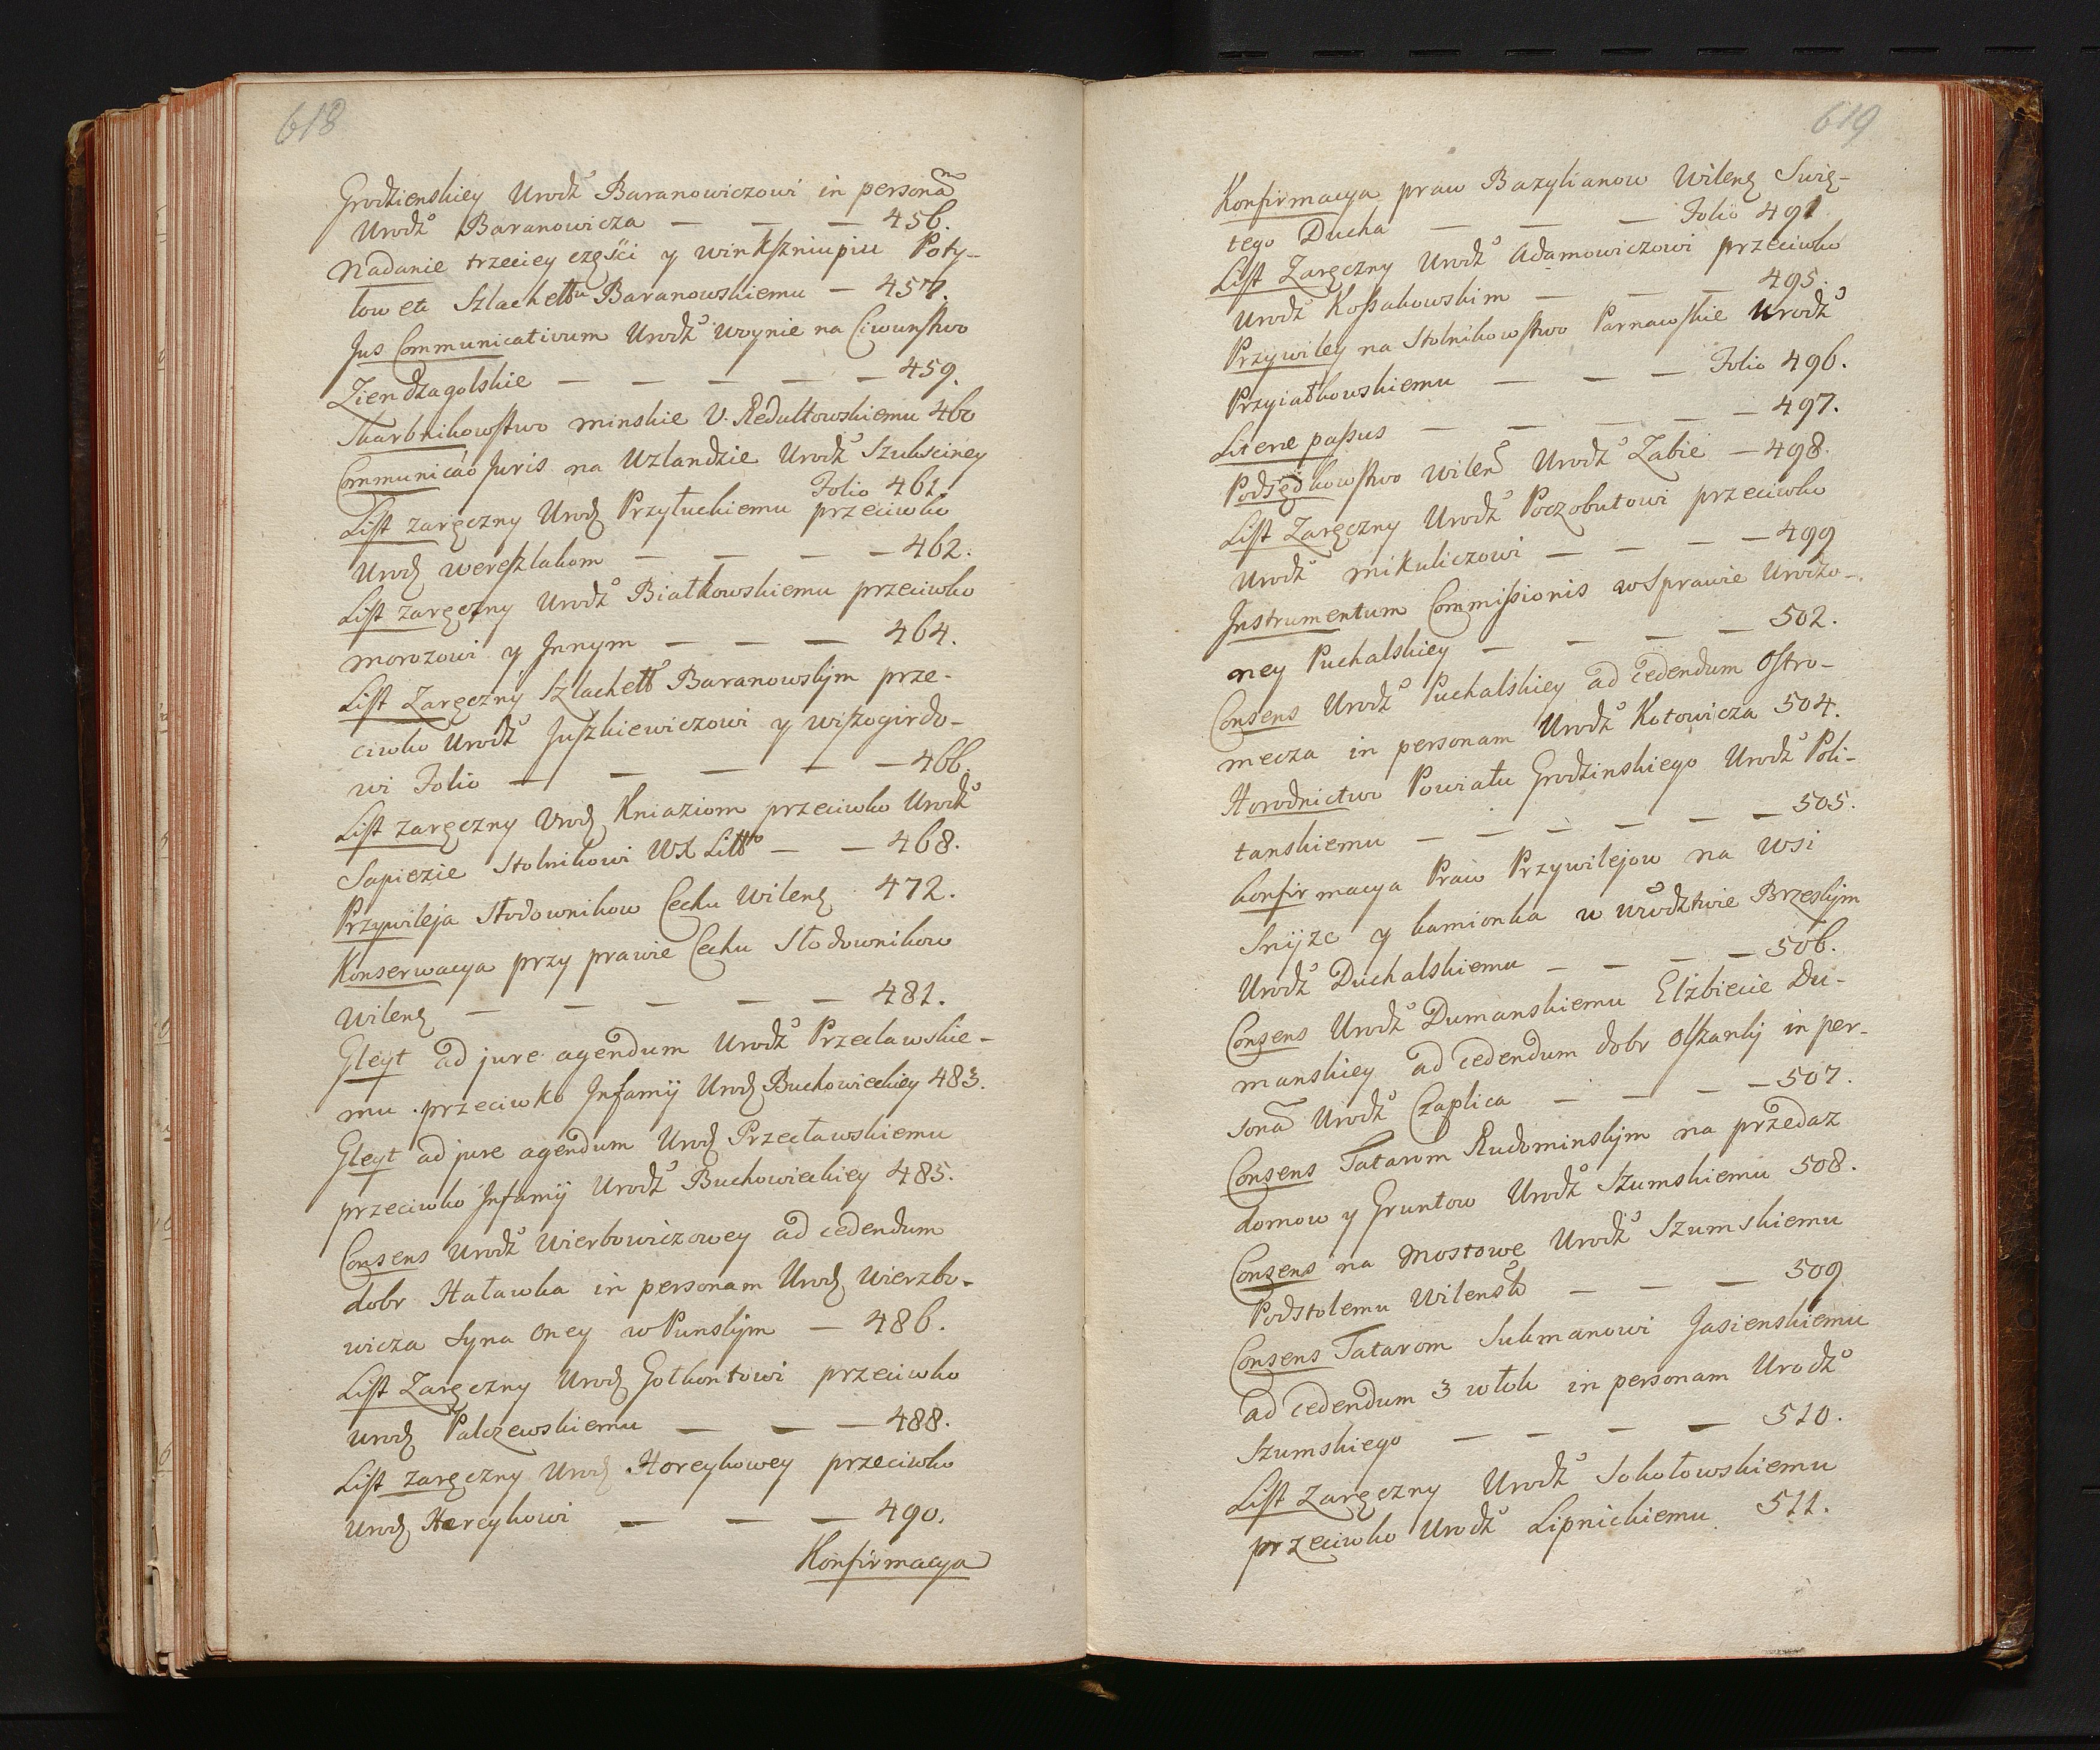 618
Grodzienskiey Urodź Baranowiczowi in personã
Urodź Baranowicza — — — 456.
Nadanie trzeciey częsci y Winkszniupiu Poty-
low etc Szlachettu Baranowskiemu — 457.
Jus Communicativum Urodź Woynie na Ciwunstwo
Ziendzagolskie — — — — — 459.
Skarbnikowstwo minskie U. Redultowskiemu 460
Communicão Juris na Uzlandzie Urodź Szuksciney
Folio 461.
List zaręczny Urodz Przyłuckiemu przeciwko
Urodz Wereszkakom — — — — 462.
List zaręczny Urodź Białkowskiemu przeciwko
morozowi y Jnnym — — — 464.
List Zaręczny Szlachett Baranowskjm prze-
ciwko Urodź Juszkiewiczowi y Wiszogirdo-
wi Folio — — — — — 466.
List zaręczny Urodz Kniaziom przeciwko Urodź
Sapiezie Stolnikowi WX Litto — — 468.
Przywileja Słodownikow Cechu Wilenz 472.
Konserwacya przy prawie Cechu Słodownikow
Wilenz — — — — — 481.
Gleyt ad jure agendum Urodź Przecławskie-
mu przeciwko Jnfamij Urodz Buchowieckiey 483.
Gleyt ad jure agendum Urodz Przecławskiemu
przeciwko Jnfamij Urodź Buchowieckiey 485.
Consens Urodź Wierbowiczowey ad cedendum
dobr Hatawka in personam Urodz Wierzbo-
wicza Syna Oney w Punskjm — 486.
List Zaręczny Urodz Gotkontowi przeciwko
Urodz Palczewskiemu — — — 488.
List zaręczny Urodz Horeykowey przeciwko
Urodz Horeykowi — — — 490.
Konfirmacya
619
Konfirmacya praw Bazylianow Wilenz Swię-
tego Ducha — — — Folio 491
List Zaręczny Urodź Adamowiczowi przeciwko
Urodź Kossakowskim — — — 495.
Przywiley na Stolnikowstwo Parnawskie Urodź
Przyiałkowskiemu — — — Folio 496.
Literæ passus — — — — — 497.
Podsędkowstwo Wilen Urodź Zabie — 498.
List Zaręczny Urodź Poczobutowi przeciwko
Urodź mikuliczowi — — — — 499
Jnstrumentum Commissionis w Sprawie Urodzo-
ney Puchalskiey — — — — 502.
Consens Urodź Puchalskiey ad cedendum Ostro-
mecza in personam Urodź Kotowicza 504.
Horodnictwo Powiatu Grodzinskiego Urodź Poli-
tanskiemu — — — — — — 505.
konfirmacya Praw Przywilejow na Wsi
Snijze y kamionka w Wodztwie Brzeskjm
Urodź Duchalskiemu — — — — 506.
Consens Urodź Dumanskiemu Elżbiecie Du-
manskiey ad cedendum dobr Olszankj in per-
sonã Urodź Czaplica — — — — 507.
Consens Tatarom Rudominskjm na przedaz
domow y Gruntow Urodź Szumskiemu 508.
Consens na Mostowe Urodź Szumskiemu
Podstolemu Wilensk — — — 509
Consens Tatarom Sulmanowi Jasienskiemu
ad cedendum 3 włok in personam Urodź
Szumskiego — — — — 510.
List Zaręczny Urodź Sokołowskiemu
przeciwko Urodź Lipnickiemu 511.